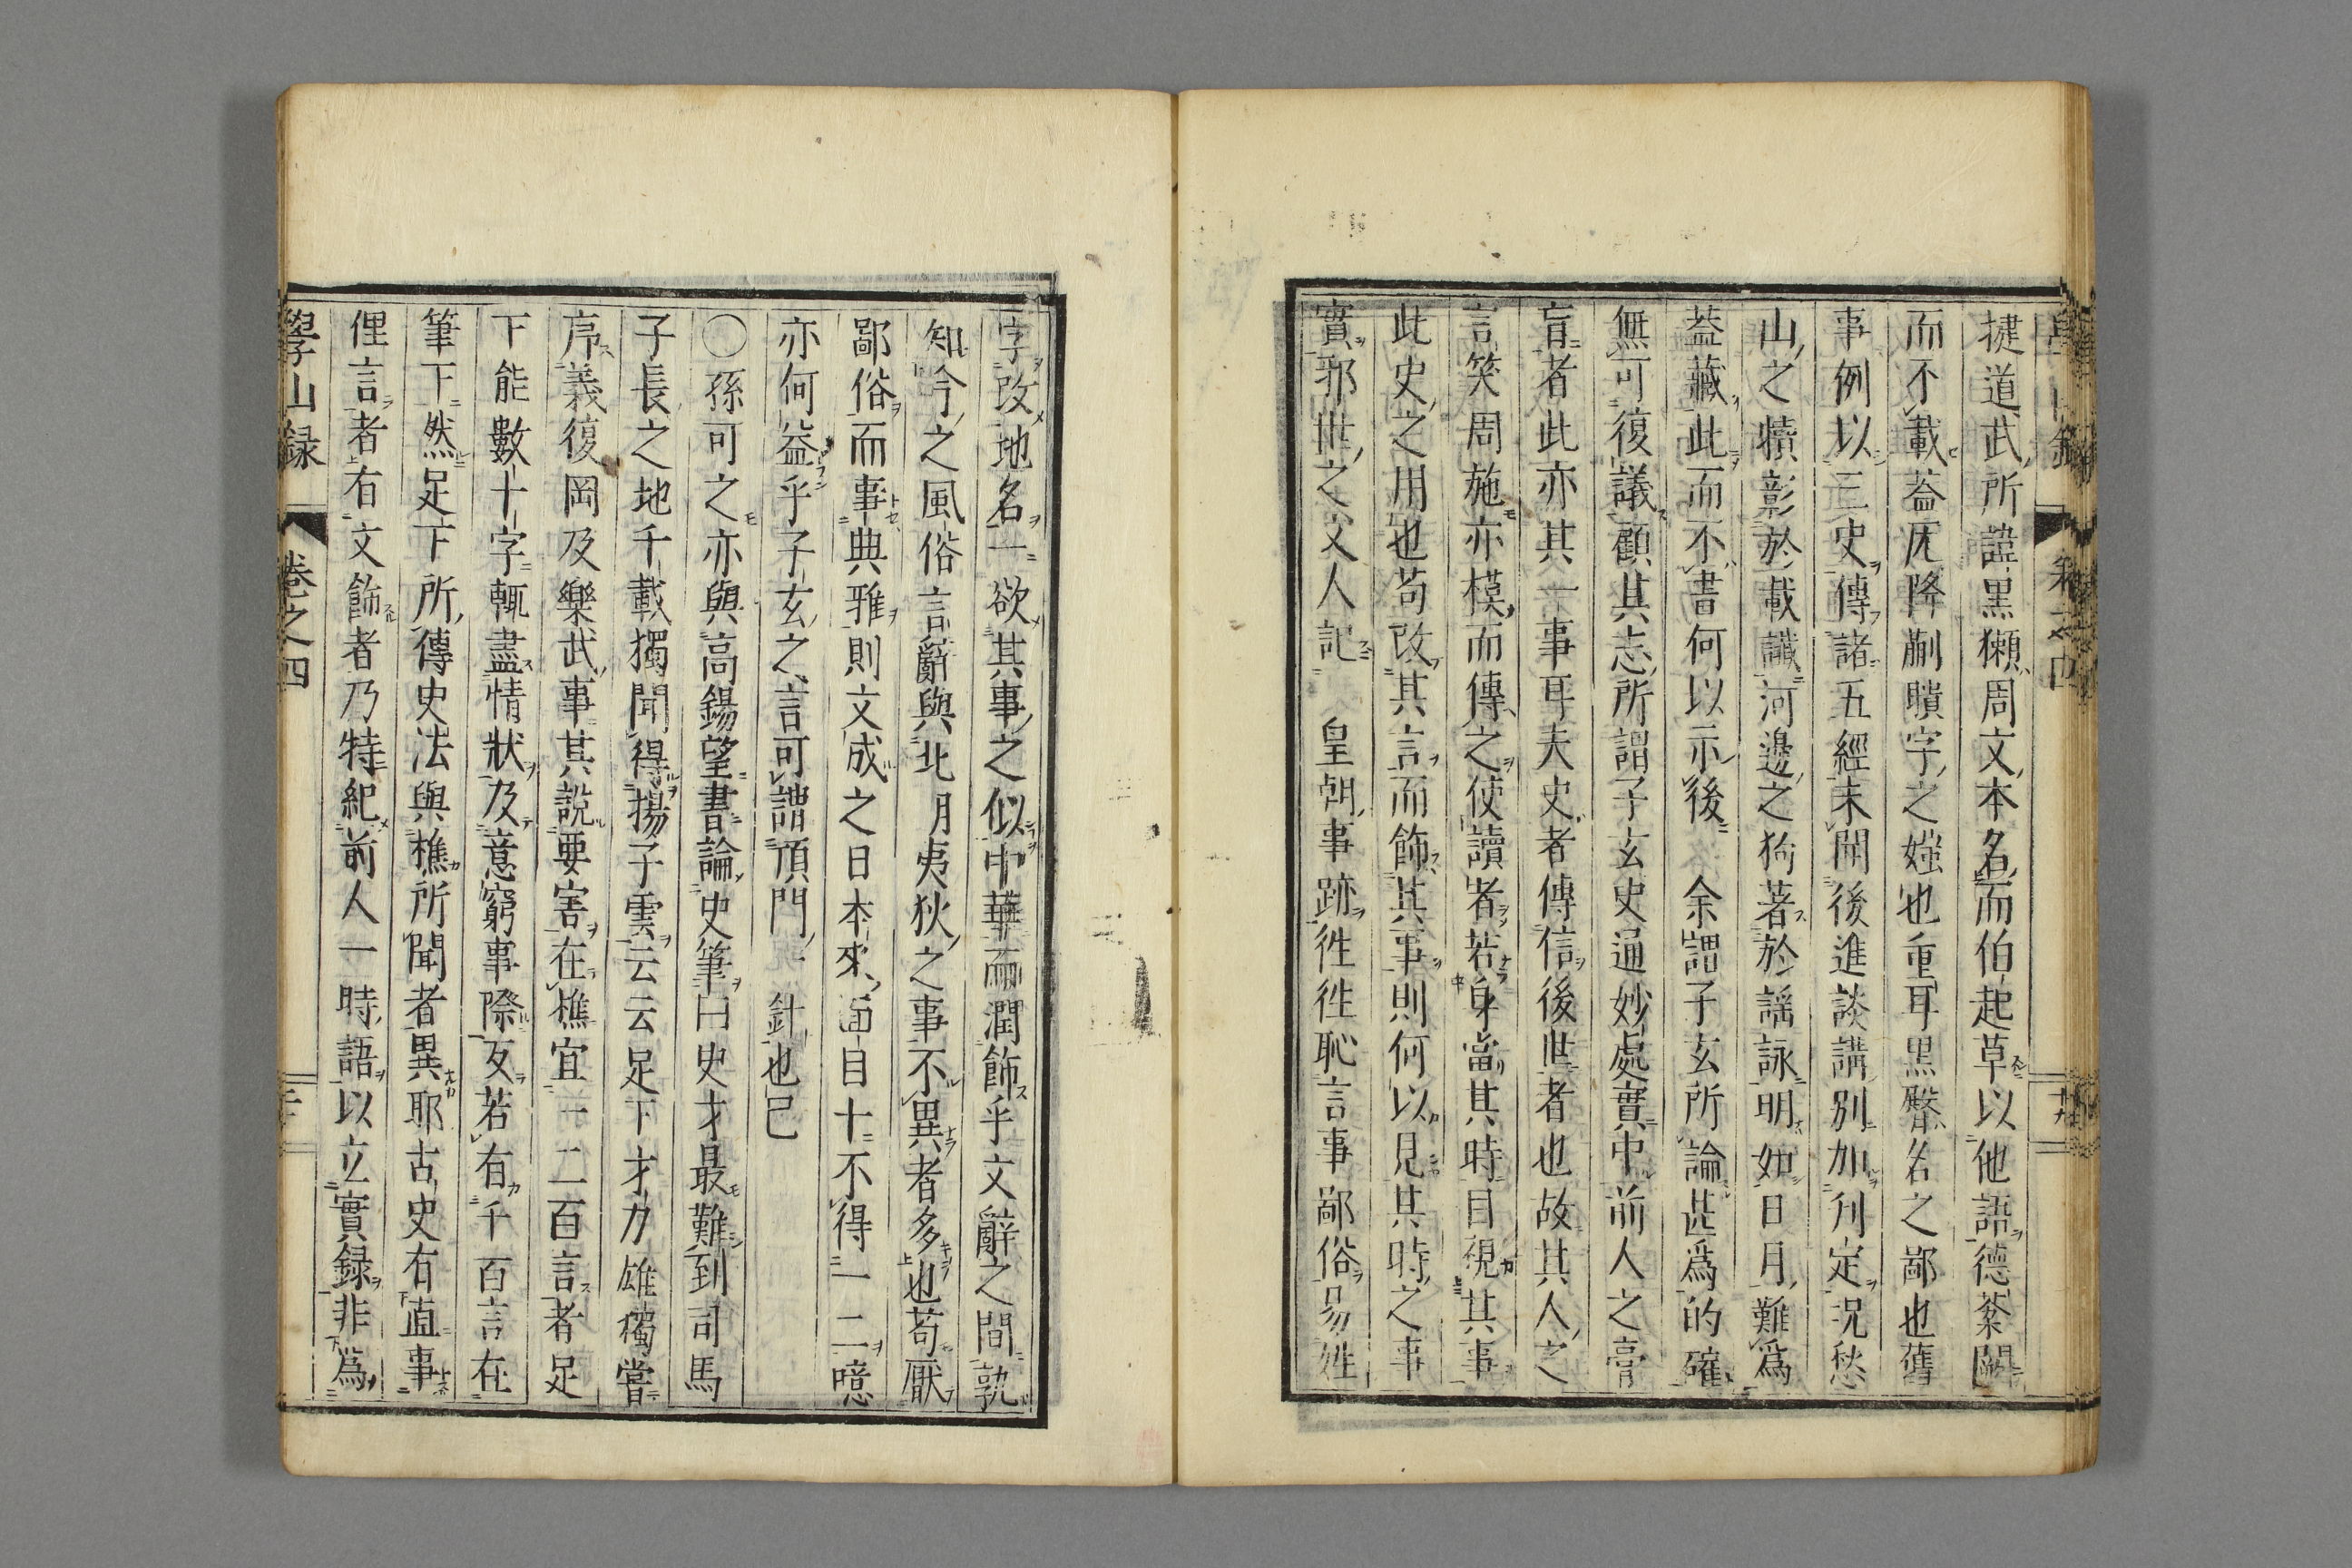 學山錄 卷之四 十九
揵道武所諱黒獺周文本名而伯起草以他語德棻闕
而不載葢厖降蒯瞶字之媸也重耳黒臀名之鄙也舊
事例以三史傳諸五經未聞後進談講別加刋定况愁
山之犢彰於載讖河邊之狗著於謡詠明如日月難爲
葢藏此而不書何以示後 余謂子玄所論甚爲的確
無可復議顧其志所謂子玄史通妙處實中前人之膏
盲者此亦其一事耳夫史者傳信後世者也故其人之
言笑周旋亦模而傳之使讀者若身當其時目視其事
此史之用也苟改其言而飾其事則何以見其時之事
實邪世之文人記 皇朝事跡徃徃恥言事鄙俗易姓
字改地名一欲其事之似中華而潤飾乎文辭之間孰
知今之風俗言辭與北月夷狄之事不異者多也苟厭
鄙俗而事典雅則文成之日本來面目十不得一二噫
亦何益乎子玄之言可謂頂門一針也已
〇孫可之亦與高錫望書論史筆曰史才最難到司馬
子長之地千載獨聞得揚子雲云云足下才力雄獨嘗
序義復岡及樂武事其説要害在樵宜一二百言者足
下能數十字輒盡情狀及意窮事際反若有千百言在
筆下然足下所傳史法與樵所聞者異耶古史有直事
俚言者有文飾者乃特紀前人一時語以立實録非爲
學山録 卷之四 二十